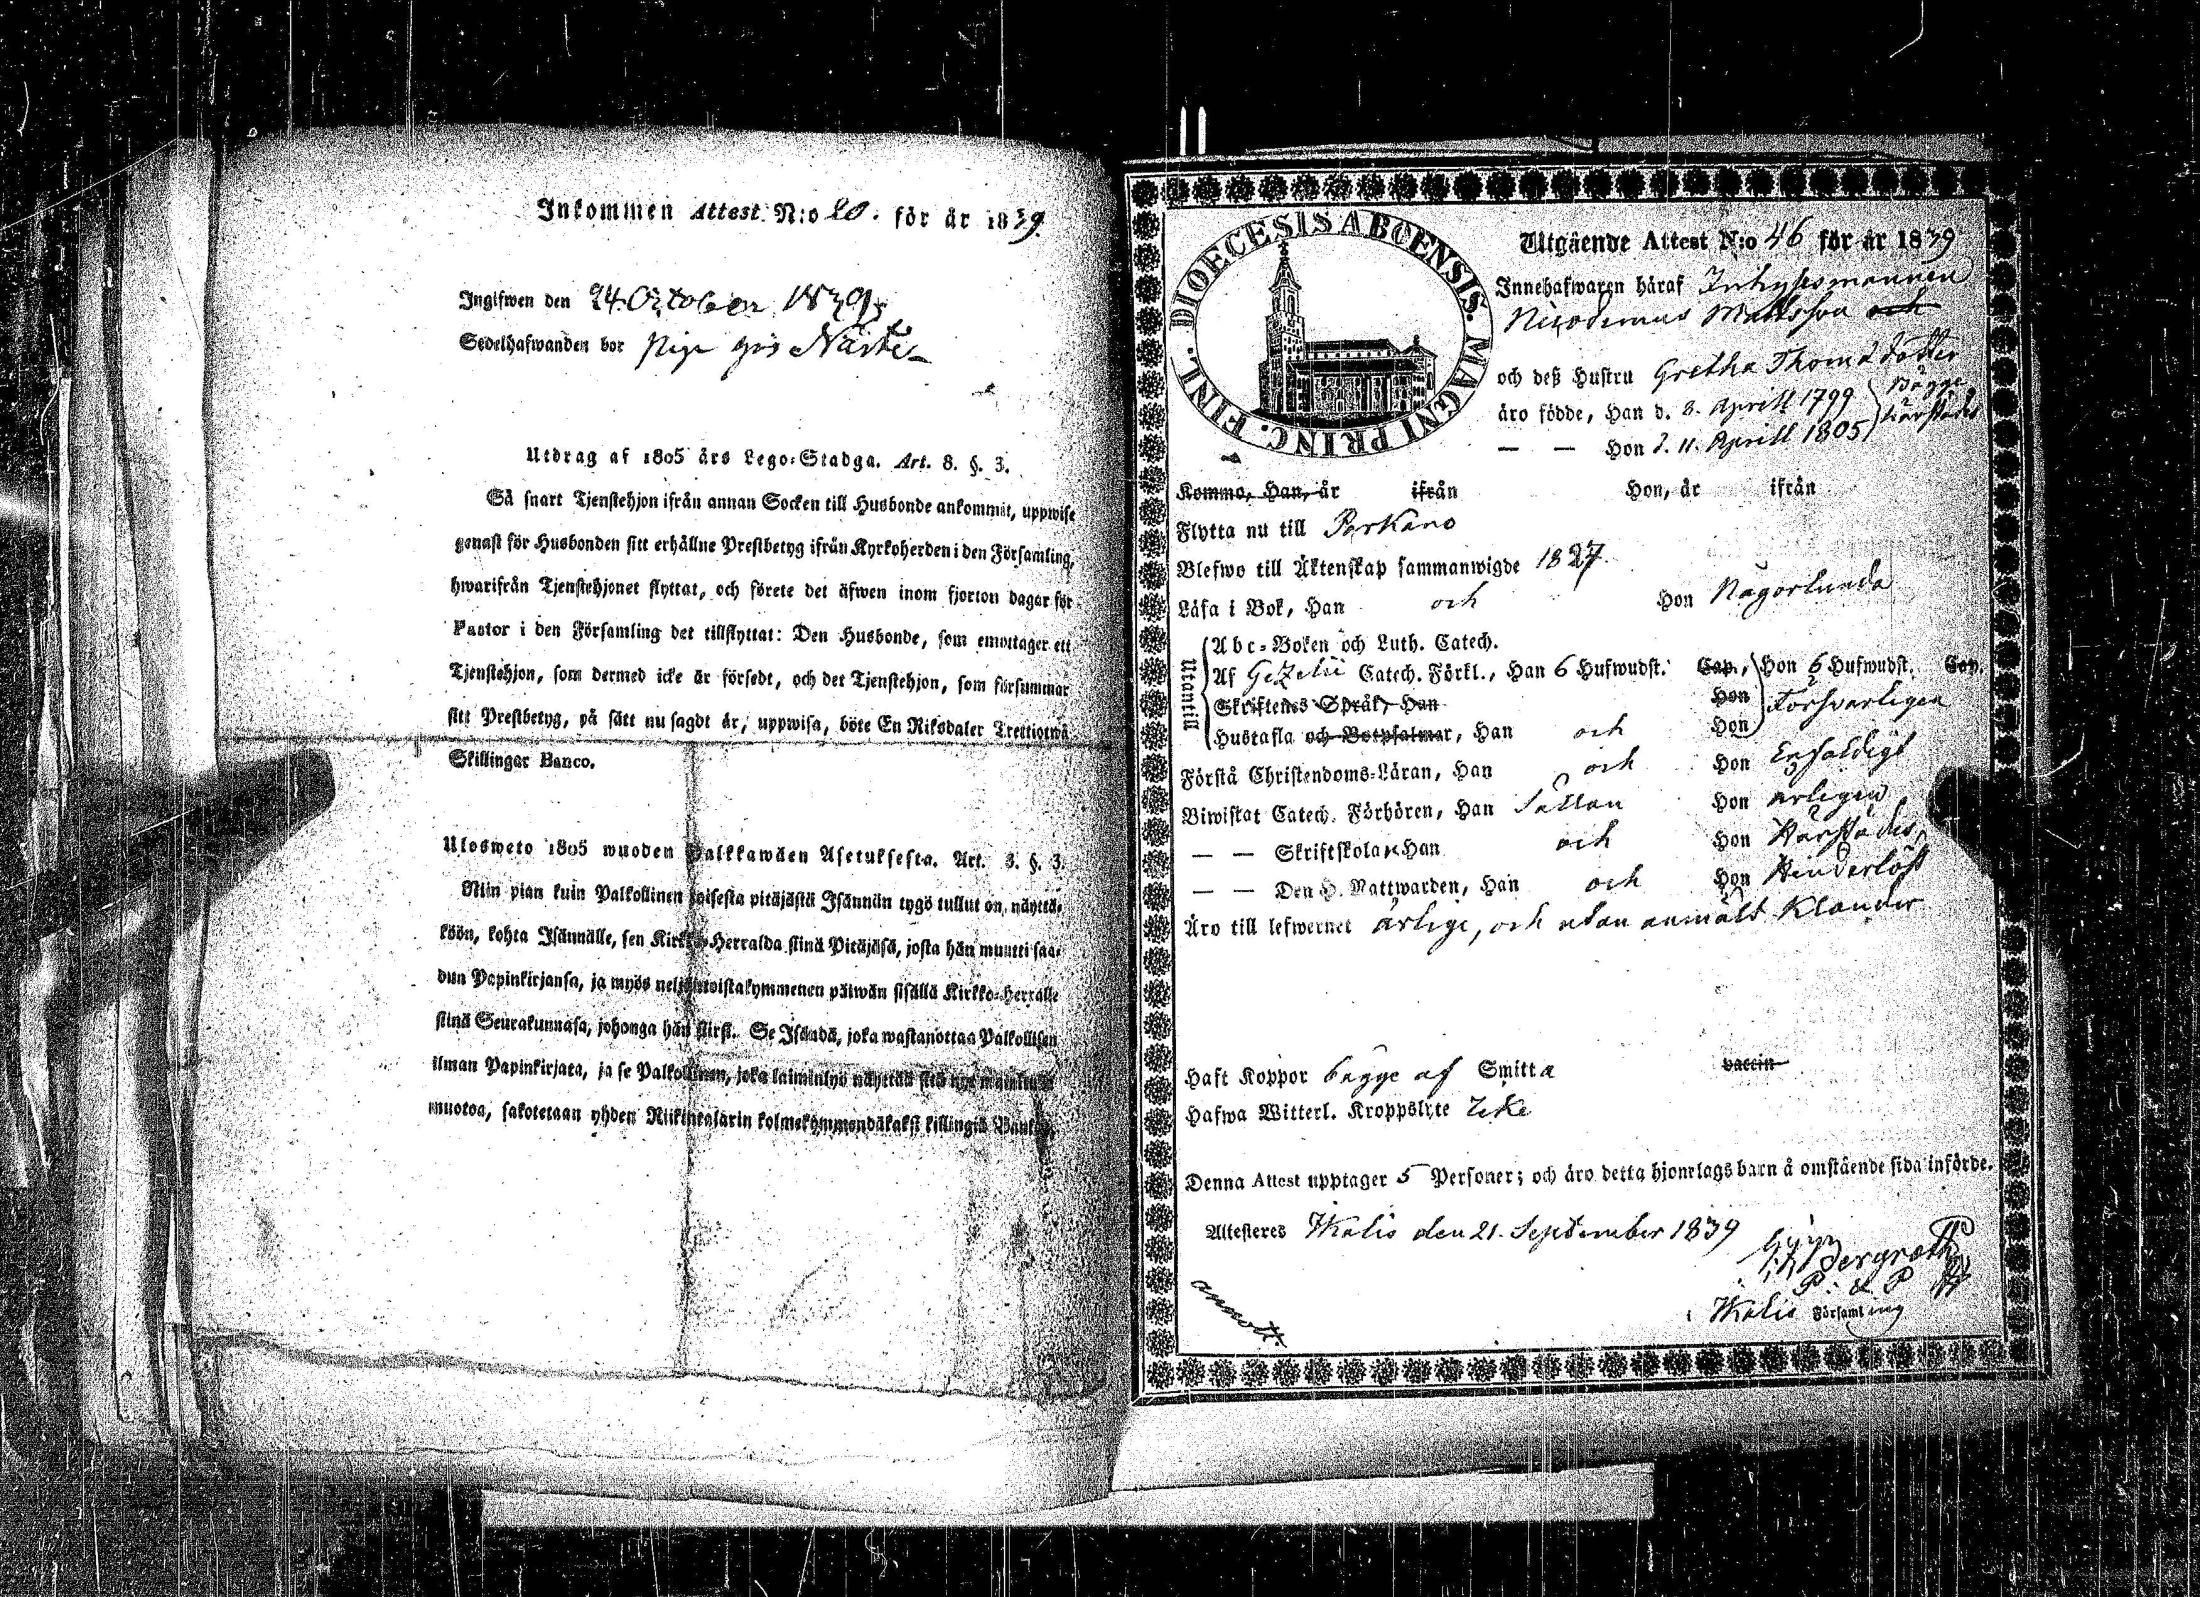 Inkommen Attest N:o 20. för år 1839.
Ingifwen den 24 October 1839
Sedelhafwanden bor
Utdrag af 1805 års Lego-Stadga. Art. 8. §. 3.
Så snart Tjenstehjon ifrån annan Socken till Husbonde ankommit, uppwise
genast för Husbonden sitt erhållne Prestbetyg ifrån Kyrkoherden i den Församling,
hwarifrån Tjenstehjonet flyttat, och förete det äfwen inom fjorton dagar för
Pastor i den Församling det tillflyttat: Den Husbonde, som emottager ett
Tjenstehjon, som dermed icke är försedt, och det Tjenstehjon, som försummar
sitt Prestbetyg, på sätt nu sagdt är, uppwisa, böte En Riksdaler Trettiotwå
Skillingar Banco.
Ulosweto 1805 wuoden Palkkawäen Asetuksesta. Art. 3. §. 3.
Niin pian kuin Palkollinen toisesta pitäjästä Isännän tygö tullut on, näyttä-
köön, kohta Isännälle, sen Kirkko-Herralda siinä Pitäjäsä, josta hän muutti saa-
dun Papinkirjansa, ja myös neljäntoistakymmenen päiwän sisällä Kirkko-Herralle
siinä Seurakunnasa, johonga hän siirsi. Se Isändä, joka wastanottaa Palkollisen
ilman Papinkirjata, ja se Palkollinen, joka laiminlyö näyttää sitä nyt mainitulla
muotoa, sakotetaan yhden Riikintalarin kolmekymmendäkaksi killingiä Bankos.
DIOECESIS ABOENSIS. MAGNI PRINC. FINL.
Utgående Attest N:o 46 för år 1839
Innehafwaren häraf Inhysesmannen
Nicodemus Mattsson och
och deß Hustru Gretha Thomsdotter
äro födde, Han d. 8. Aprill 1799 Bägge
— — Hon d. 11. Aprill 1805 härstädes
Komma, Han, år ifrån Hon, år ifrån
Flytta nu till Parkano
Blefwo till Äktenskap sammanwigde 1827.
Läsa i Bok, Han och Hon Någorlunda
Utantill
Abc-Boken och Luth. Catech.
Af Gezelii Catech. Förkl., Han 6 Hufwudst. Cap., Hon 6 Hufwudst. Cap.
Skriftenes Språk, Han Hon Försvarligen
Hustafla och Botpsalmar, Han och Hon
Förstå Christendoms-Läran, Han och Hon Enfaldigt
Biwistat Catech. Förhören, Han Sällan Hon årligen
— — Skriftskolan Han och Hon Härstädes
— — Den H. Nattwarden, Han och Hon Hinderlöst
Äro till lefwernet ärlige, och utan anmäldt Klander
Haft Koppor bägge af Smitta vaccin
Hafwa Witterl. Kroppslyte Icke
Denna Attest upptager 5 Personer; och äro detta hjonelags barn å omstående sida införde.
Attesteres Ikalis den 21. September 1839
Bergroth
P. & P
i Ikalis Församling
annott.